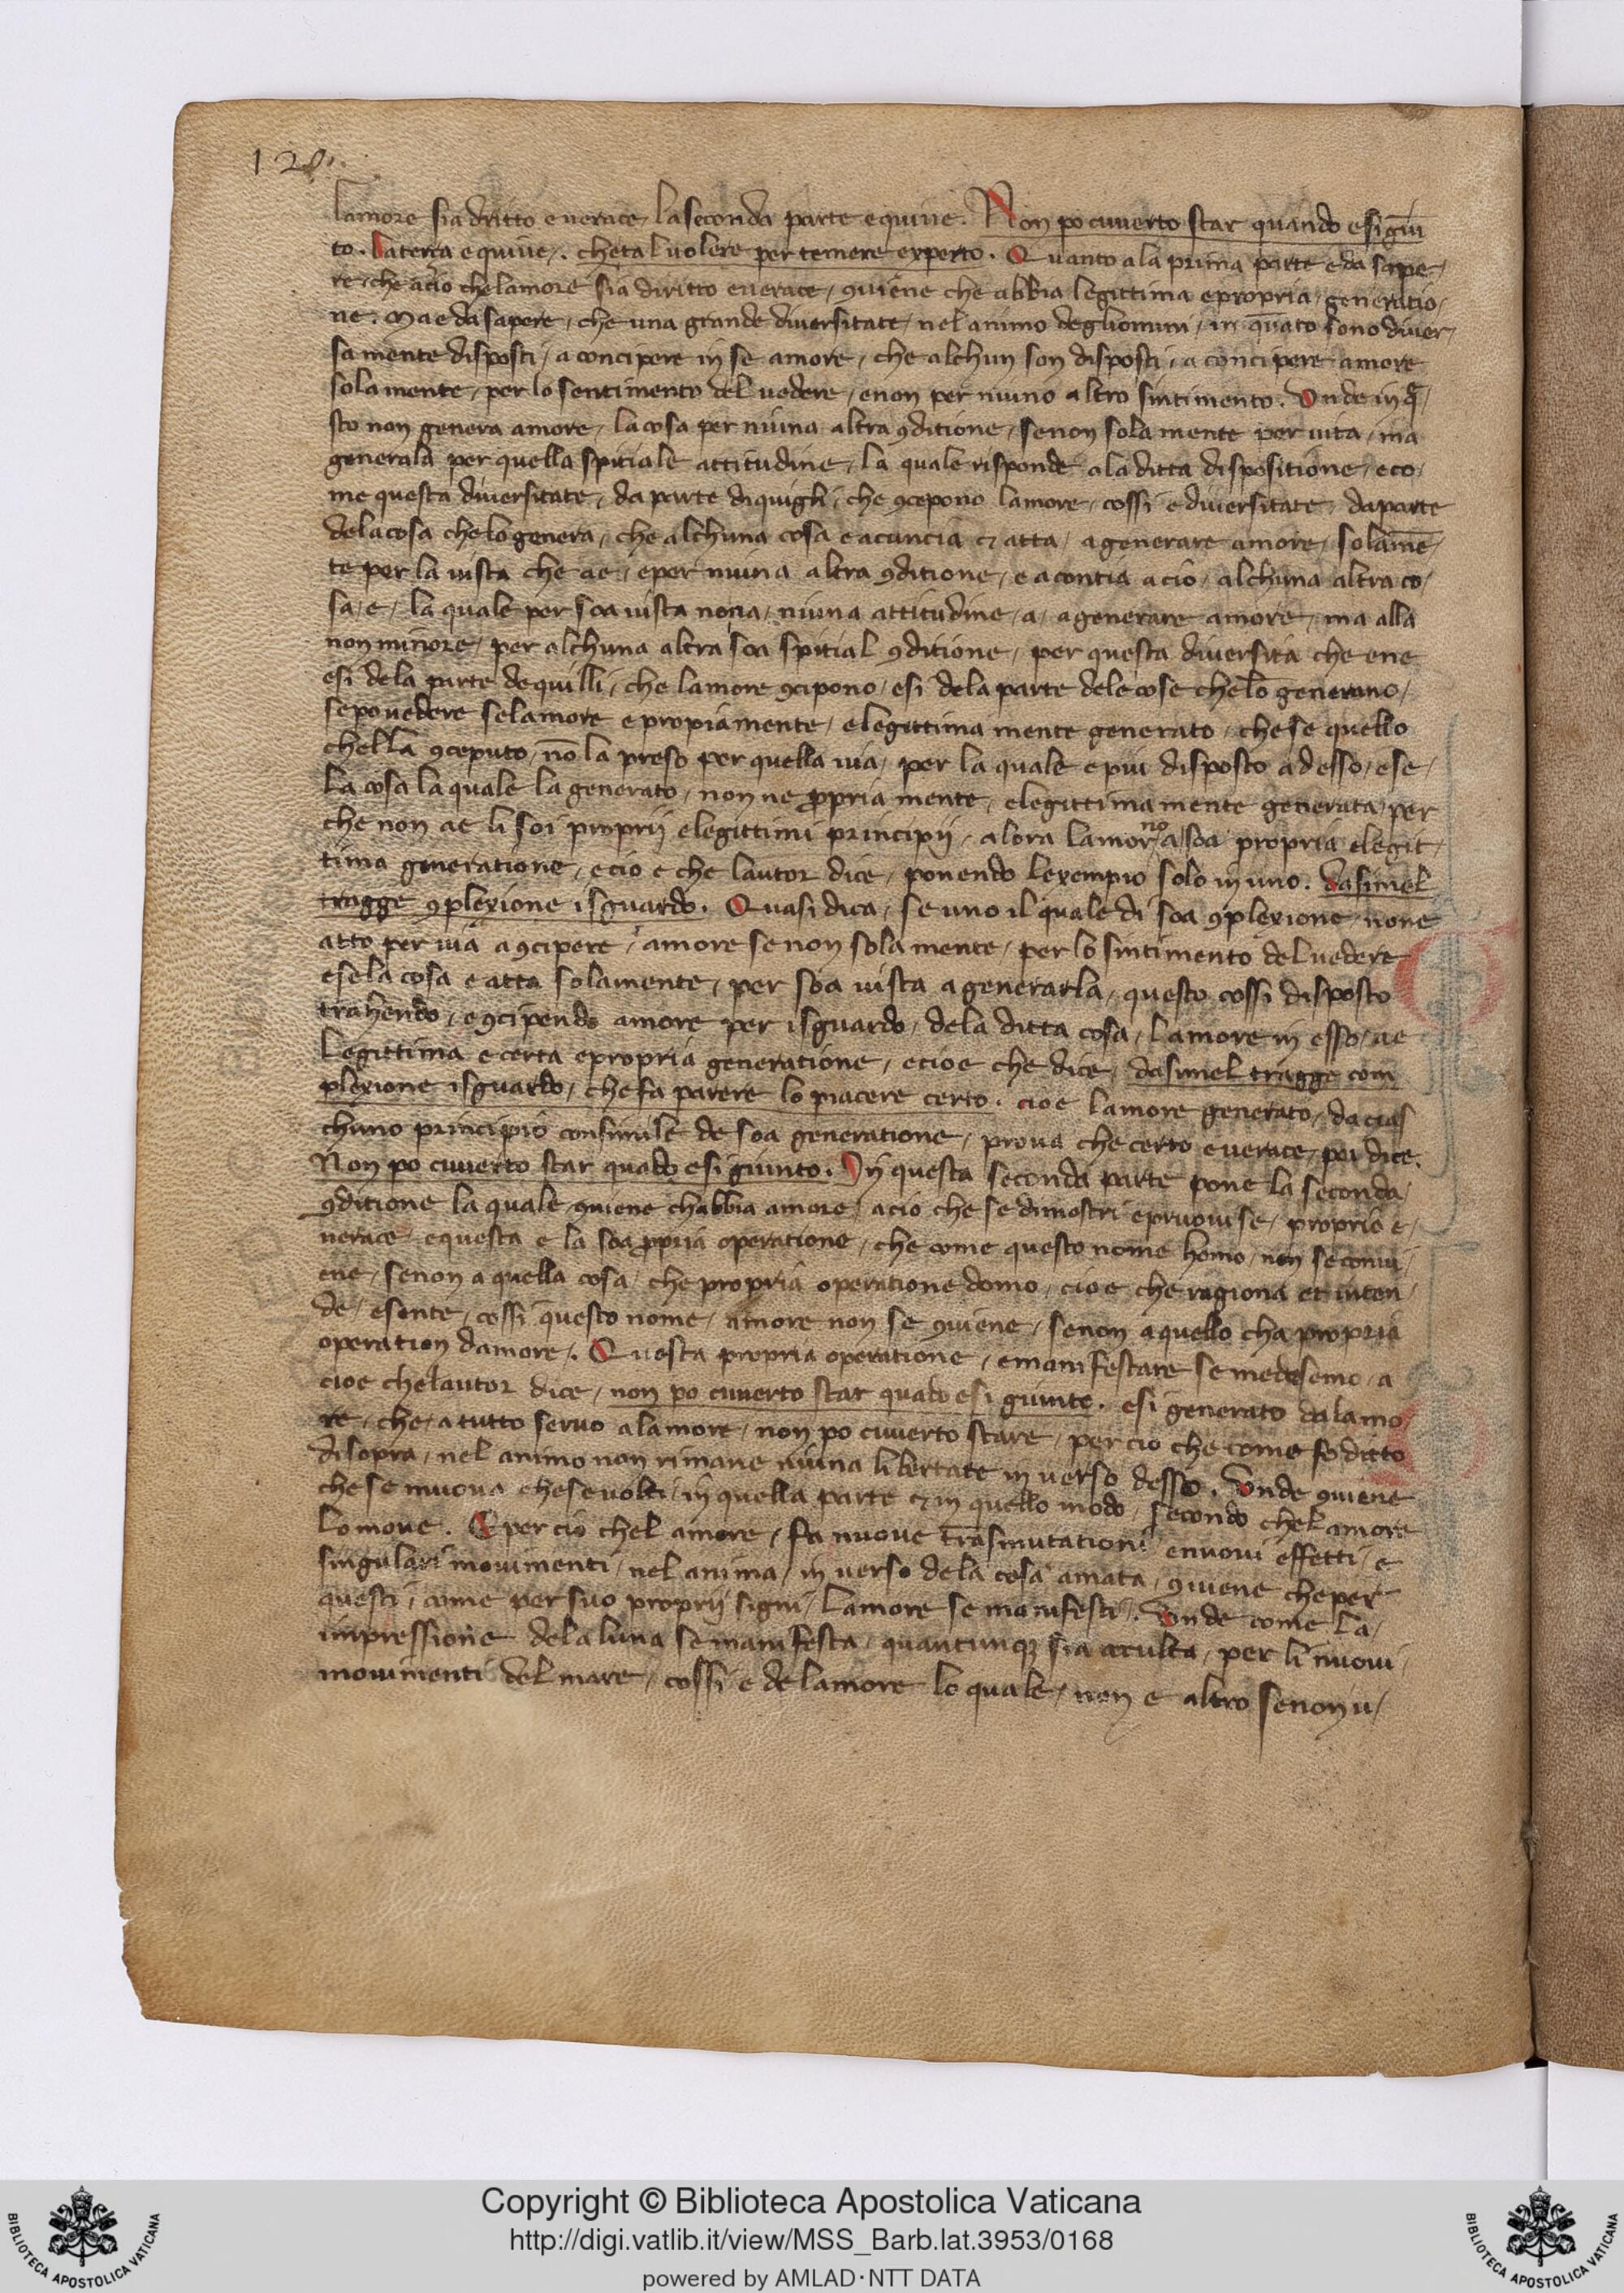 120.
lamore sia dritto e verace / la seconda parte e quive. Non po cuverto star quando e si giū
to. La terza e quive / . che tal volere per temere experto. Quanto a la prima parte e da sape /
re / che acio che lamore sia diritto e verace / ꝯviene che abbia legittima e propria / generatio /
ne. Ma e da sapere / che una grande diversitate / nel animo degliomini / in quāto sono diver /
samente disposti / a concipere in se amore / che alchun son disposti / a concipere amore
solamente / per lo sentimento del vedere / e non per niuno altro sintimento. Onde in q̄ /
sto non genera amore / la cosa per niuna altra ꝯditione / se non sola mente per vita / ma
generala per quella spitiale attitudine / la quale risponde a la ditta dispositione / e co /
me questa diversitate / da parte di quigli / che ꝯcepono lamore / cossi e diversitate / da parte
dela cosa che lo genera / che alchuna cosa e acuncia et atta / a generare amore / solamē /
te per la vista che ae / e per niuna altra ꝯditione / e acontia a cio / alchuna altra co /
sa / e / la quale per soa vista nona / niuna attitudine / a / a generare amore / ma alla
non minore / per alchuna altra soa spitial ꝯditione / per questa diversita che ene
e si dela parte de quilli / che lamore ꝯcipono / e si dela parte dele cose che lo generano /
se po vedere se lamore e propiamente / e legittima mente generato / che se quello
che lla ꝯceputo / nō la preso per quella via / per la quale e piu disposto ad esso / e se /
la cosa la quale la generato / non ne ꝓpria mente / e legittima mente generata / per
che non ae li soi proprij e legittimi principij / alora lamor no a soa propria e legit /
tima generatione / e cio e che lautor dice / ponendo lexempio solo in uno. Da simel
tragge ꝯplexione isguardo. Quasi dica / se uno il quale di soa ꝯplexione / none
atto per via a ꝯcipere / amore se non sola mente / per lo sintimento del vedere
e se la cosa e atta solamente / per soa vista a generarla / questo cossi disposto
trahendo / e ꝯcipendo amore per isguardo / dela ditta cosa / lamore in esso / ae
legittima e certa e propria generatione / e cio e che dice / da simel tragge com
plexione isguardo / che fa parere lo piacere certo. cioe lamore generato / da cias
chuno principio consimile de soa generatione / prova che certo e verace / poi dice.
Non po cuverto star quādo e si giunto. In questa seconda parte pone la seconda /
ꝯditione la quale ꝯviene chabbia amore / acio che se dimostri e pruovise / proprio e /
verace / e questa e la soa ꝓpria operatione / che come questo nome homo / non se convi /
ene / se non a quella cosa / che propria operatione domo / cioe che ragiona et inten /
de / e sente / cossi questo nome / amore non se ꝯviene / se non a quello cha propria
operation damore / . Questa propria operatione / e manifestare se medesemo / a
cioe che lautor dice / non po cuverto star quādo e si giunte. e si generato dalamo /
re / che / a tutto servo a lamore / non po cuverto stare / per cio che come fo ditto
di sopra / nel animo non rimane niuna libertate in verso desso. Onde ꝯviene
che se muova e che se volti / in quella parte et in quello modo / secondo chel amore
lo move. E per cio chel amore / fa nuove trāsmutationi e nuovi effetti / e
singulari movimenti / nel anima / in verso dela cosa amata / ꝯviene che per
questi / come per suo proprij signi / lamore se manifesti / . Onde come la /
impressione dela luna se manifesta / quantunqꝫ sia occulta / per li nuovi /
movimenti del mare / cossi e de lamore lo quale / non e altro se non u /
Copyright © Biblioteca Apostolica Vaticana
http://digi.vatlib.it/view/MSS_Barb.lat.3953/0168
powered by AMLAD·NTT DATA
BIBLIOTECA APOSTOLICA VATICANA
BIBLIOTECA APOSTOLICA VATICANA